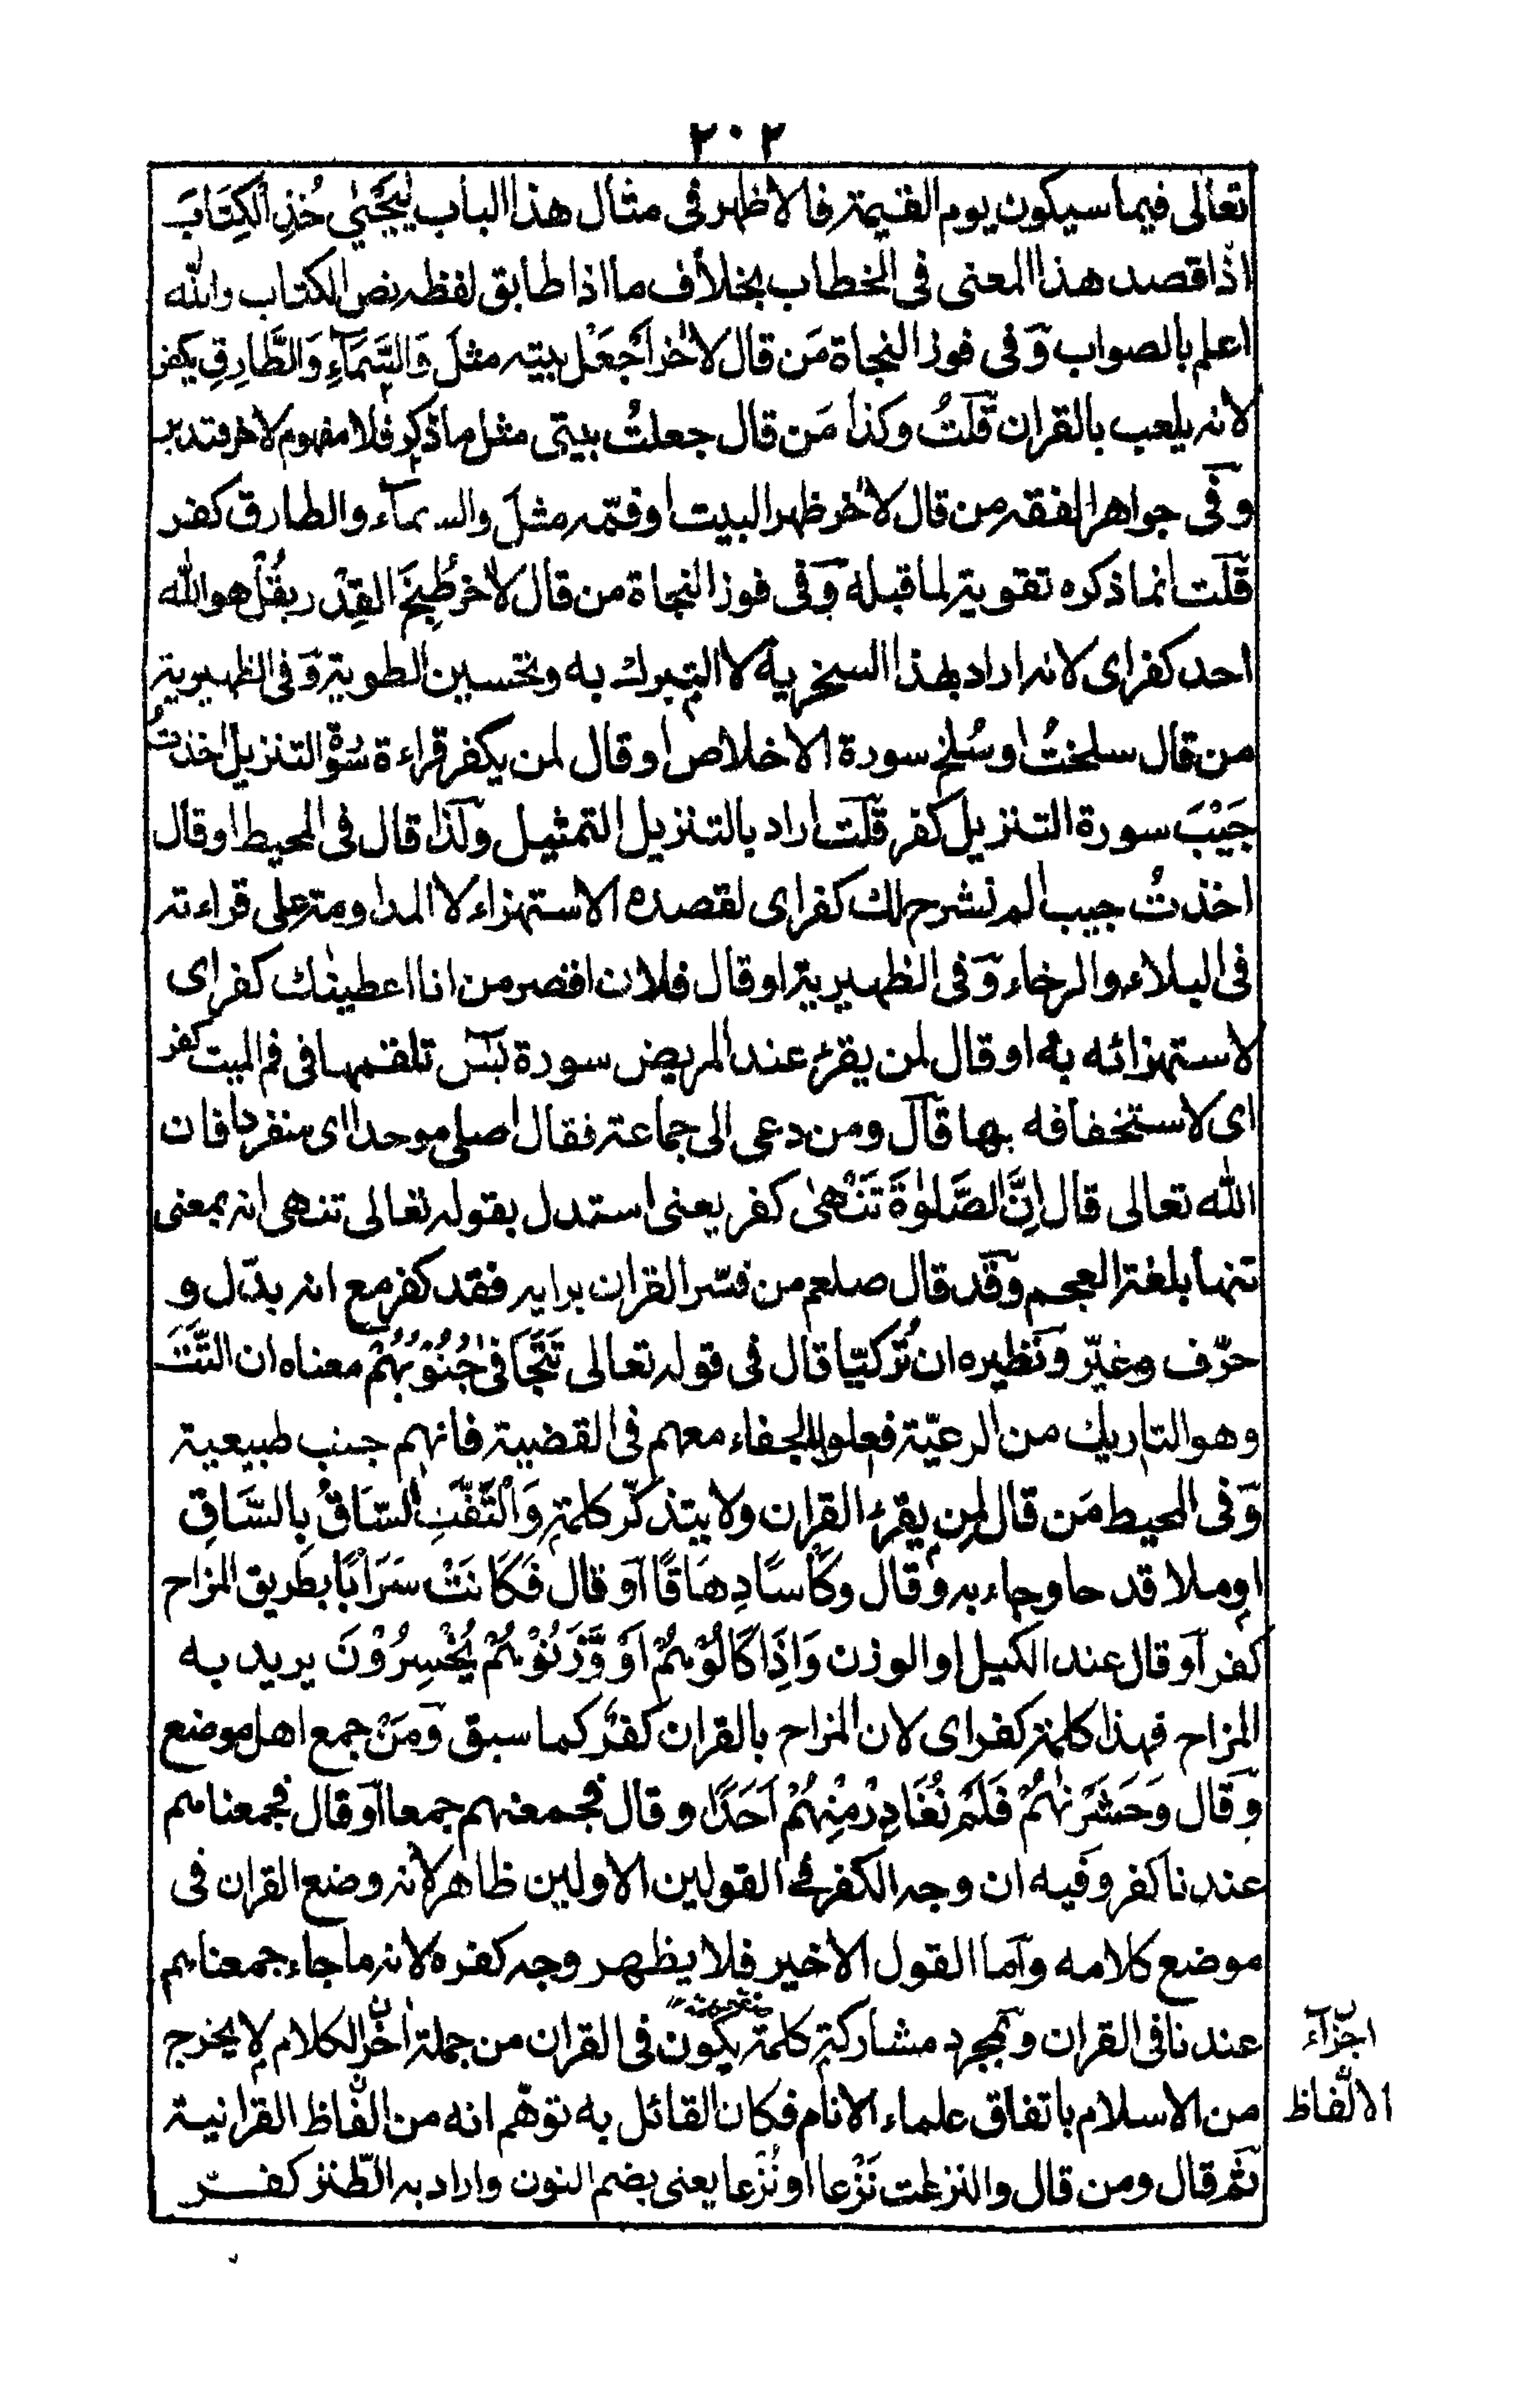 ٢٠٢
تعالى فيما سيكون يوم القيمة فالاظهر فى مثال هذا الباب يٰيَحْيٰى خُذِ الْكِتَابَ
اذا قصد هذا المعنى فى الخطاب بخلاف ما اذا طابق لفظه نص الكتاب والله
اعلم بالصواب وَفى فوز النجاة مَن قال لاٰخر اَجعَل بيته مثلَ وَالسَّمَآءِ وَالطَّارِقِ يكفر
لانه يلعب بالقران قلتُ وكذا مَن قال جعلتُ بيتى مثل ما ذكر فلا مفهوم لاخر فتدبر
وفى جواهر الفقه من قال لاٰخر ظهر البيت او فمّه مثلَ والسمآء والطارق كفر
قلت انما ذكره تقوية لما قبله وفى فوز النجاة من قال لاٰخر طُبِخَ القِدْر بقُلْ هو الله
احد كفر اى لانه اراد بهذا السخرية لا التبرك به وتحسين الطوية وَفى الظهيرية
من قال سلختُ او سُلخ سورة الاخلاص او قال لمن يكفر قراءة سُورة التنزيل اخذتُ
جَيْبَ سورة التنزيل كفر قلت اراد بالتنزيل التمثيل ولذا قال فى المحيط او قال
اخذتُ جيب الم نشرح لك كفر اى لقصده الاستهزاء لا المداومة على قراءته
فى البلاء والرخاء وَفى الظهيرية او قال فلان اقصر من انا اعطينٰك كفر اى
لاستهزائه به او قال لمن يقرء عند المريض سورة يٰسٓ تلقمها فى فم الميت كفر
اى لاستخفافه بها قال ومن دعى الى جماعة فقال اصلى موحدا اى منفردا فان
الله تعالى قال اِنَّ الصَّلٰوةَ تَنْهىٰ كفر يعنى استدل بقوله تعالى تنهى انه بمعنى
تنها بلغة العجم وقد قال صلعم من فسّر القران برايه فقد كفر مع انه بدّل و
حرّف وغيّر ونظيره ان تُركيّا قال فى قوله تعالى تَتَجَافىٰ جُنُوْبُهُمْ معناه ان التَّتَ
وهو التاريك من الرعيّة فعلوا الجفاء معهم فى القضية فانهم جنب طبيعية
وَفى المحيط مَن قال لمن يقرء القران ولا يتذكّر كلمة وَالْتَفَّتِ السَّاقُ بِالسَّاقِ
او ملا قدحا وجاء به وقال وكَاْسًا دِهَاقًا اَو قال فَكَانَتْ سَرَابًا بطريق المزاح
كفر اَو قال عند الكيل او الوزن وَاِذَا كَالُوْهُمْ اَوْ وَّزَنُوْهُمْ يُخْسِرُوْنَ يريد به
المزاح فهذا كلمة كفر اى لان المزاح بالقران كفرٌ كما سبق وَمَنْ جمع اهل موضع
وقال وَحَشَرْنٰهُمْ فَلَمْ نُغَادِرْ مِنْهُمْ اَحَدًا وقال فجمعنٰهم جمعا اَو قال فجمعناهم
عندنا كفر وفيه ان وجه الكفر فى القولين الاولين ظاهر لانه وضع القران فى
موضع كلامه واما القول الاخير فلا يظهر وجه كفره لانه ما جاء جمعناهم
عندنا فى القران وبمجرد مشاركة كلمة يكون فى القران من جملة اٰخر الكلام لا يخرج
اجزآء
من الاسلام باتفاق علماء الانام فكان القائل به توهّم انه من الفاظ القرانية
الالفاظ
ثم قال ومن قال والنزعٰت نَزْعا او نُزعا يعنى بضم النون واراد به الطنز كفر